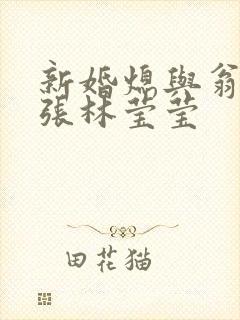 新婚熄與翁
張林莹莹
田花猫